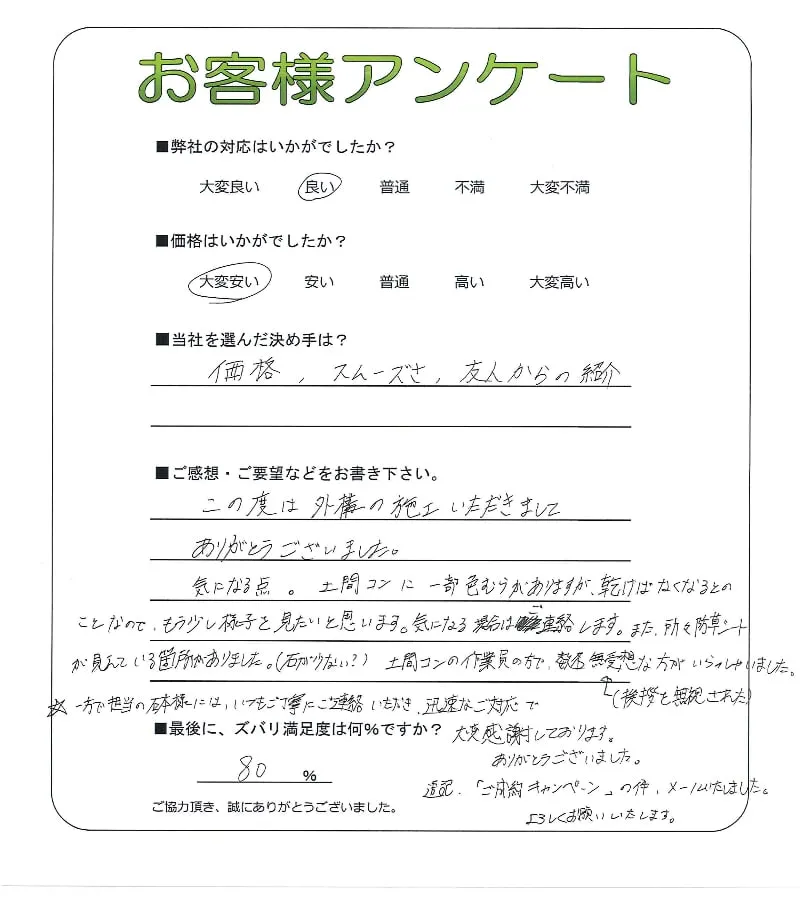 お客様アンケート
■弊社の対応はいかがでしたか？
大変良い 良い 普通 不満 大変不満
■価格はいかがでしたか？
大変安い 安い 普通 高い 大変高い
■当社を選んだ決め手は？
価格，スムーズさ，友人からの紹介
■ご感想・ご要望などをお書き下さい。
この度は外構の施工いただきまして
ありがとうございました。
気になる点。土間コンに一部色むらがありますが、乾けばなくなるとの
ことなので、もう少し様子を見たいと思います。気になる場合はご連絡します。また、所々防草シート
が見えている箇所がありました。(石が少ない？) 土間コンの作業員の方で、無愛想な方がいらっしゃいました。
(挨拶を無視された)
☆一方で担当の様には、いつもご丁寧にご連絡いただき、迅速なご対応で
大変感謝しております。
ありがとうございました。
■最後に、ズバリ満足度は何％ですか？
80 ％
追記．「ご成約キャンペーン」の件，メールいたしました。
よろしくお願いいたします。
ご協力頂き、誠にありがとうございました。